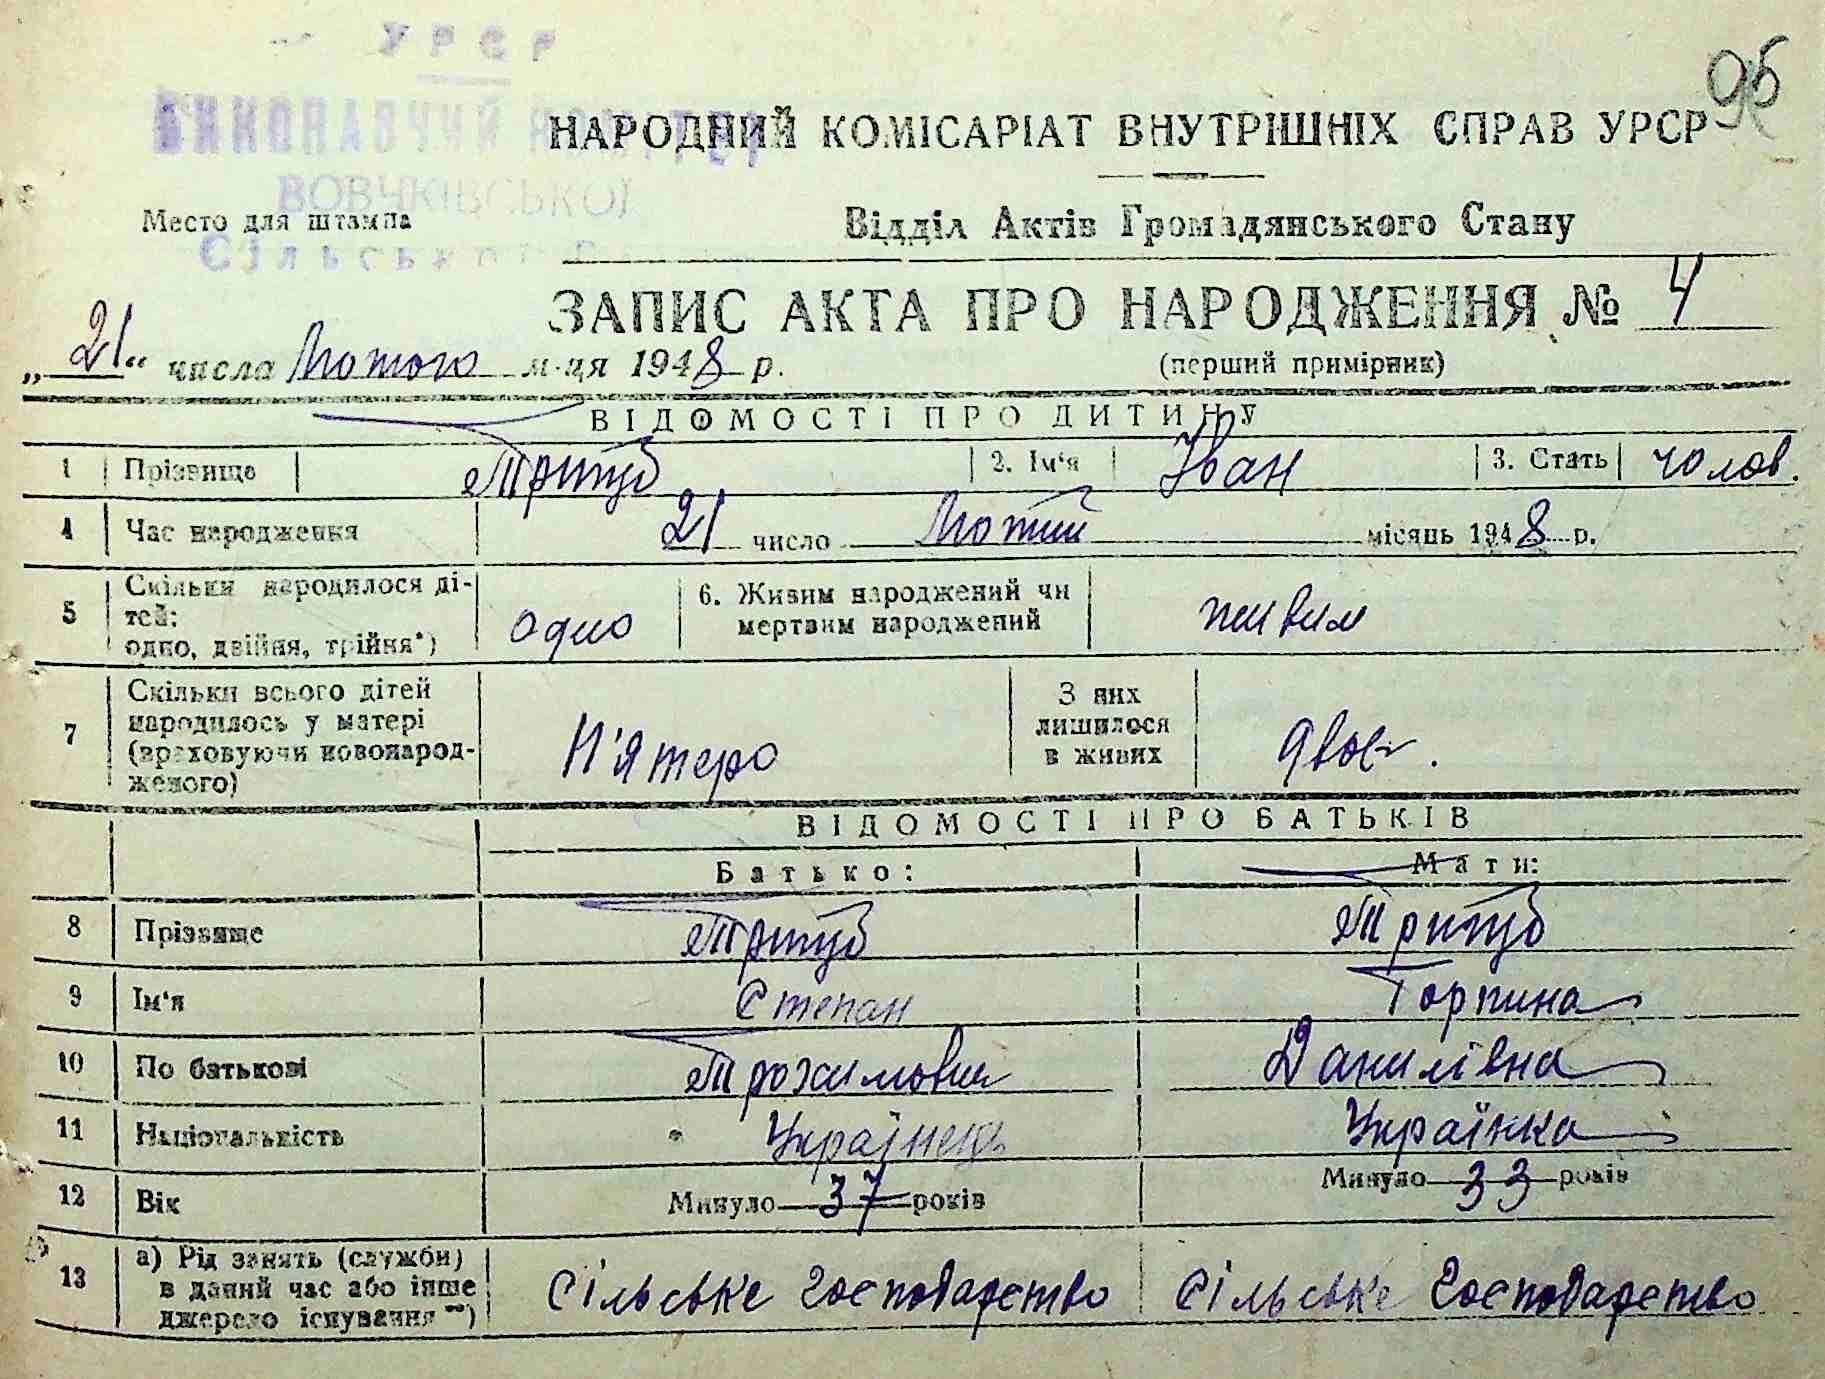 УРСР
95
ВИКОНАВЧИЙ КОМІТЕТ
НАРОДНИЙ КОМІСАРІАТ ВНУТРІШНІХ СПРАВ УРСР
ВОВЧКІВСЬКОЇ
Место для штампа
Відділ Актів Громадянського Стану
Сільської
ЗАПИС АКТА ПРО НАРОДЖЕННЯ № 4
„21“ числа Лютого м-ця 1948 р.
(перший примірник)
ВІДОМОСТІ ПРО ДИТИНУ
1 Прізвище Притуб 2. Ім'я Іван 3. Стать чолов.
4 Час народження 21 число Лютий місяць 1948 р.
5 Скільки народилося ді-
тей:
одно, двійня, трійня*)
одно
6. Живим народжений чи
мертвим народжений
живим
7 Скільки всього дітей
народилось у матері
(враховуючи новонарод-
женого)
П'ятеро
З них
лишилося
в живих
двоє.
ВІДОМОСТІ ПРО БАТЬКІВ
Батько: Мати:
8 Прізвище Притуб Притуб
9 Ім'я Степан Горпина
10 По батькові Трохимович Данилівна
11 Національність Українець Українка
12 Вік Минуло 37 років Минуло 33 років
13 а) Рід занять (служби)
в даний час або інше
джерело існування **)
Сільське господарство Сільське господарство